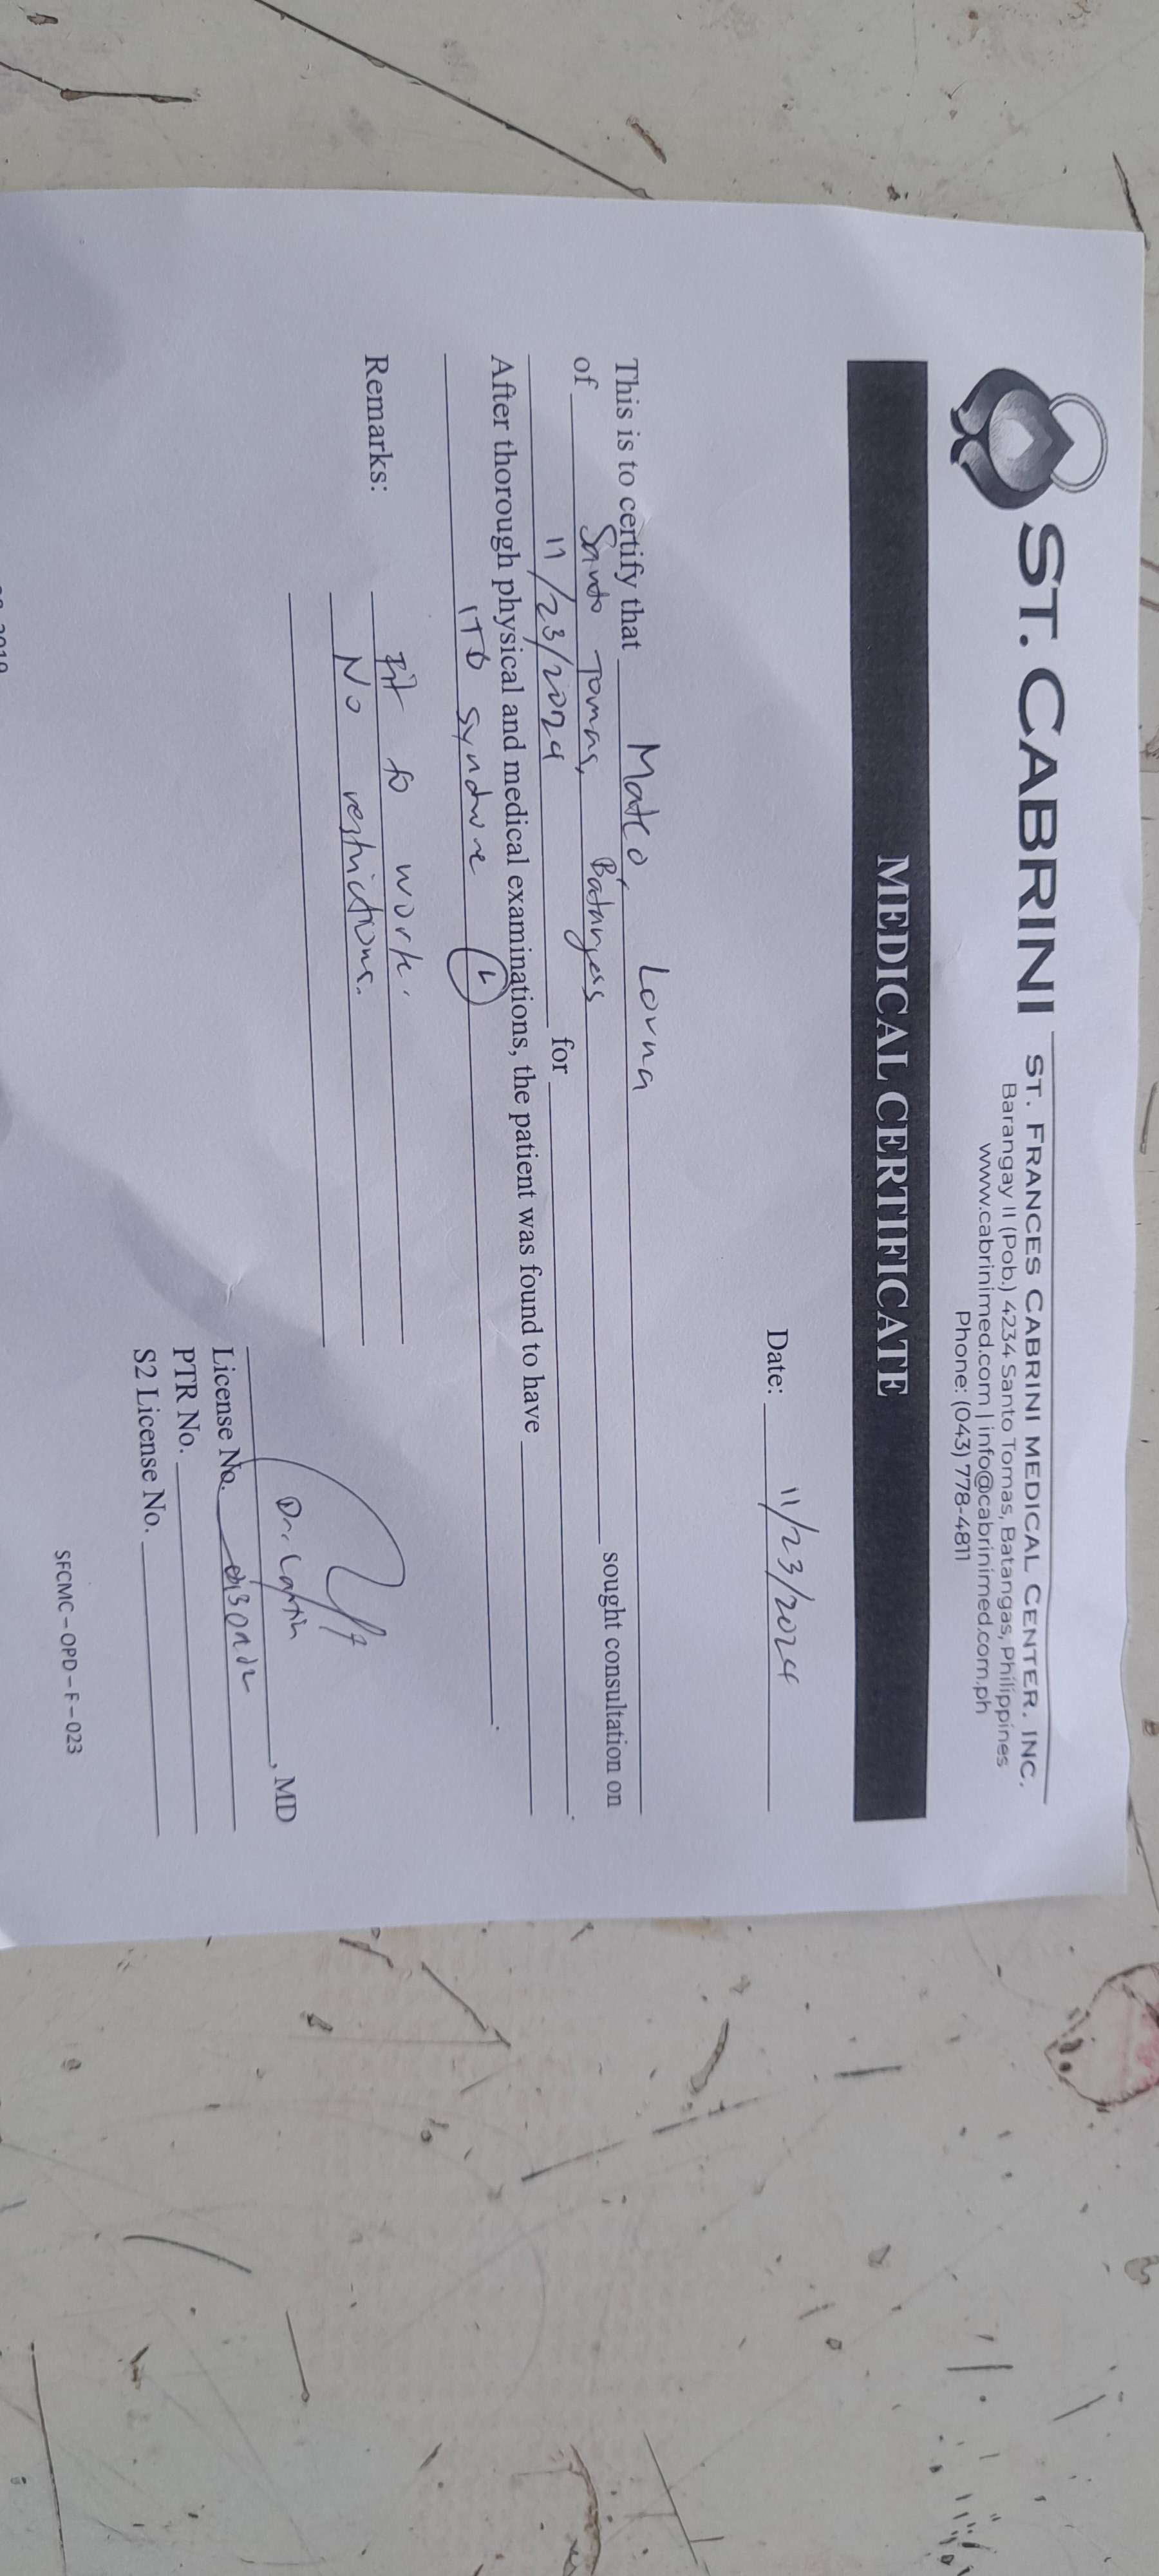 ST. CABRINI
ST. FRANCES CABRINI MEDICAL CENTER. INC.
Barangay II (Pob.) 4234 Santo Tomas, Batangas, Philippines
www.cabrinimed.com | info@cabrinimed.com.ph
Phone: (043) 778-4811
MEDICAL CERTIFICATE
Date: 11/23/2024
This is to certify that Mateo, Lorna
of Santo Tomas, Batangas sought consultation on
11/23/2024 for .
After thorough physical and medical examinations, the patient was found to have
ITB syndrome (L) .
Remarks: Fit to work.
No restrictions.
Dr. , MD
License No.
PTR No.
S2 License No.
SFCMC-OPD-F-023